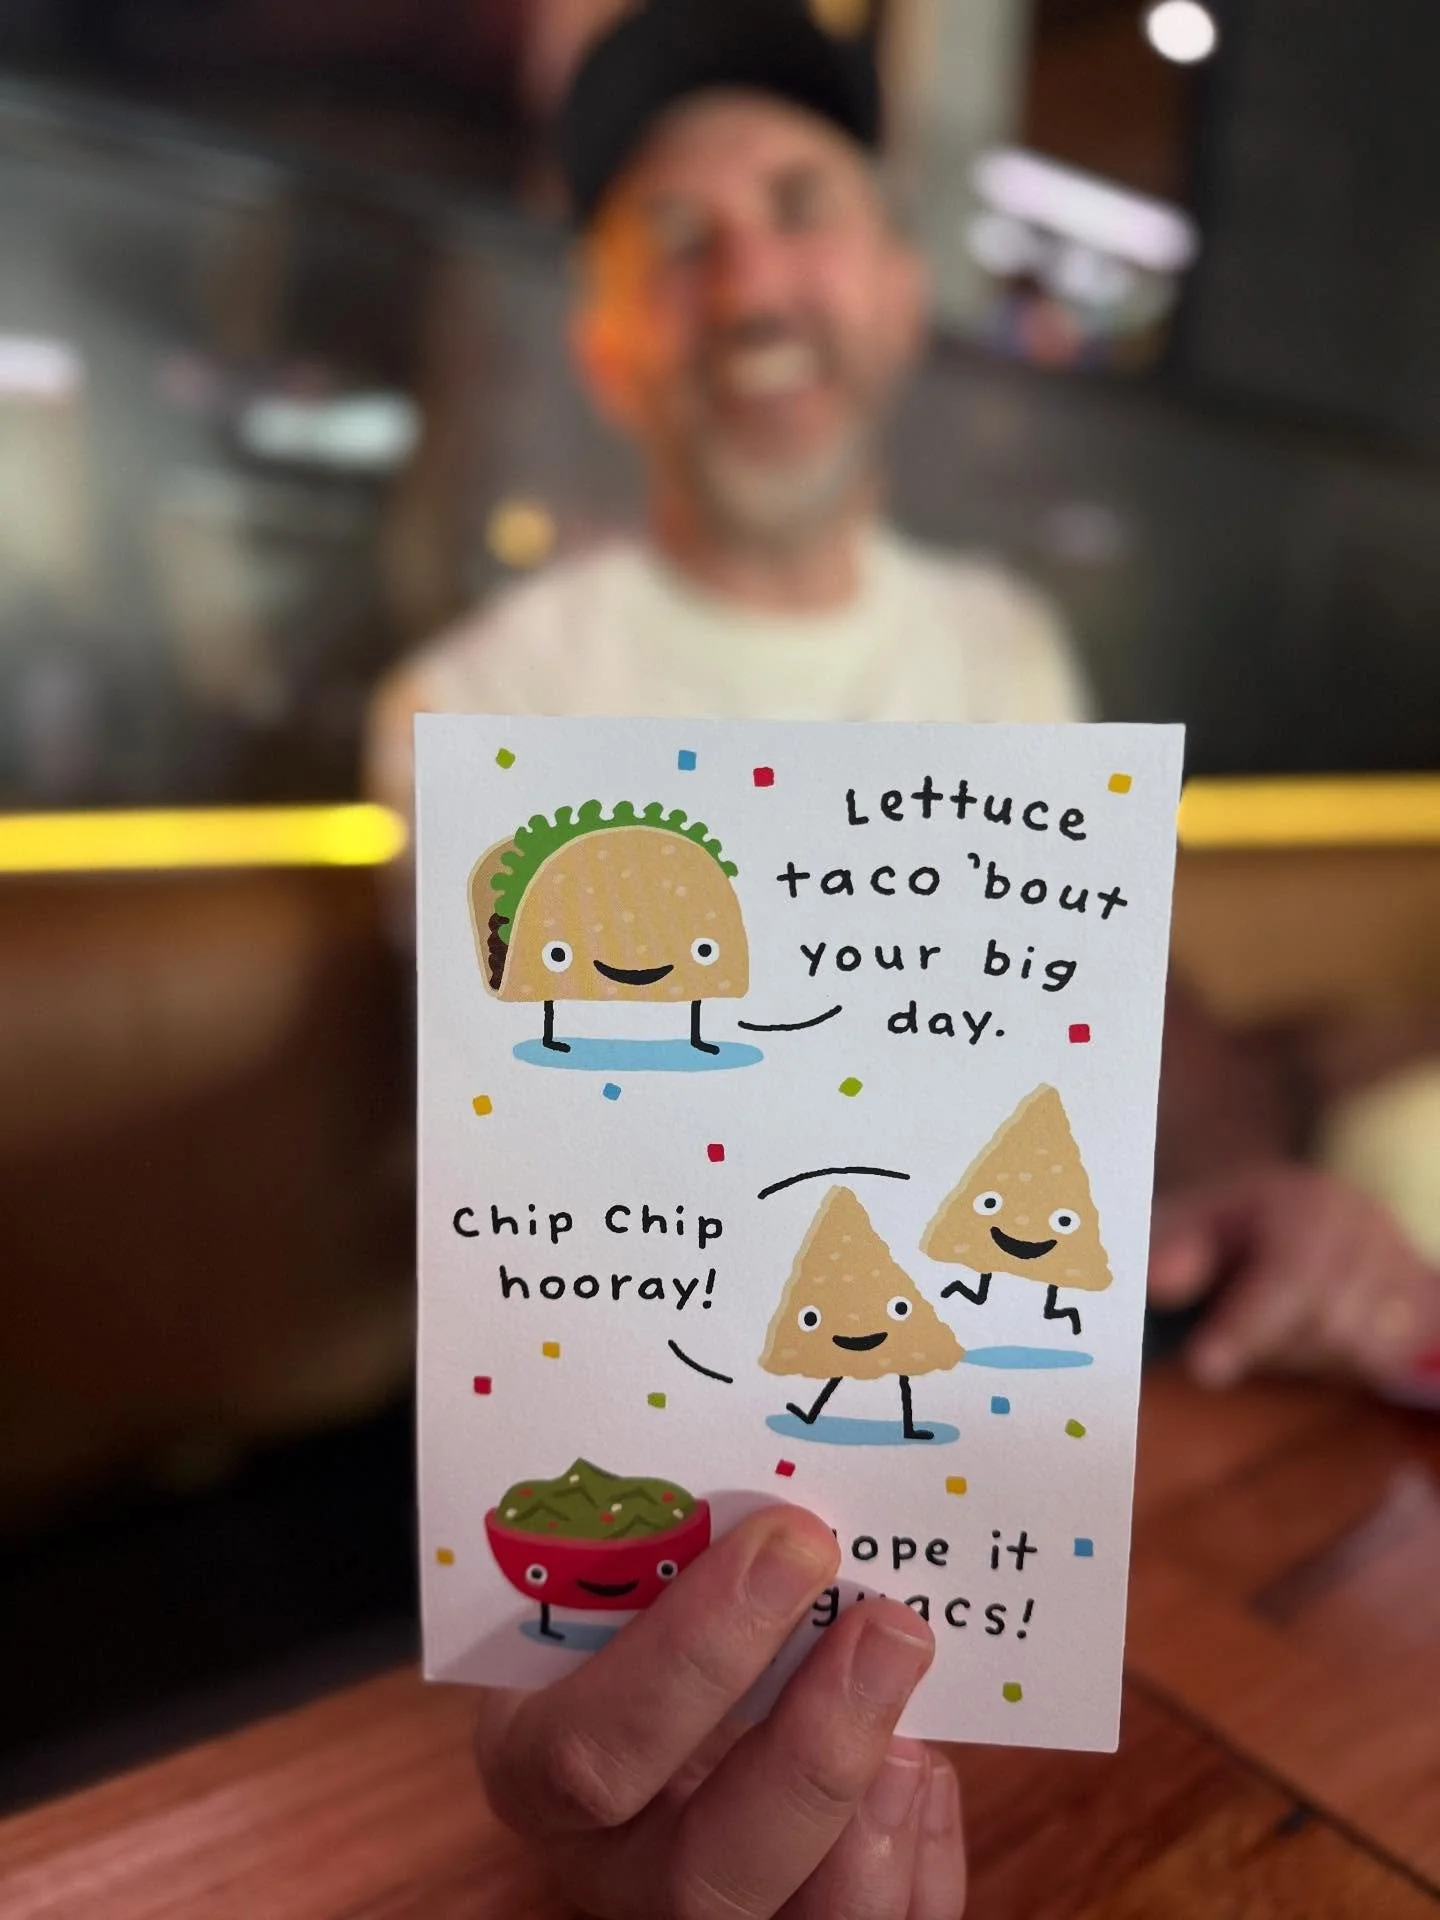 Lettuce
taco 'bout
your big
day.
Chip Chip
hooray!
ope it
guacs!